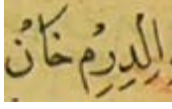 اِلْدِرِمْ خَانْ